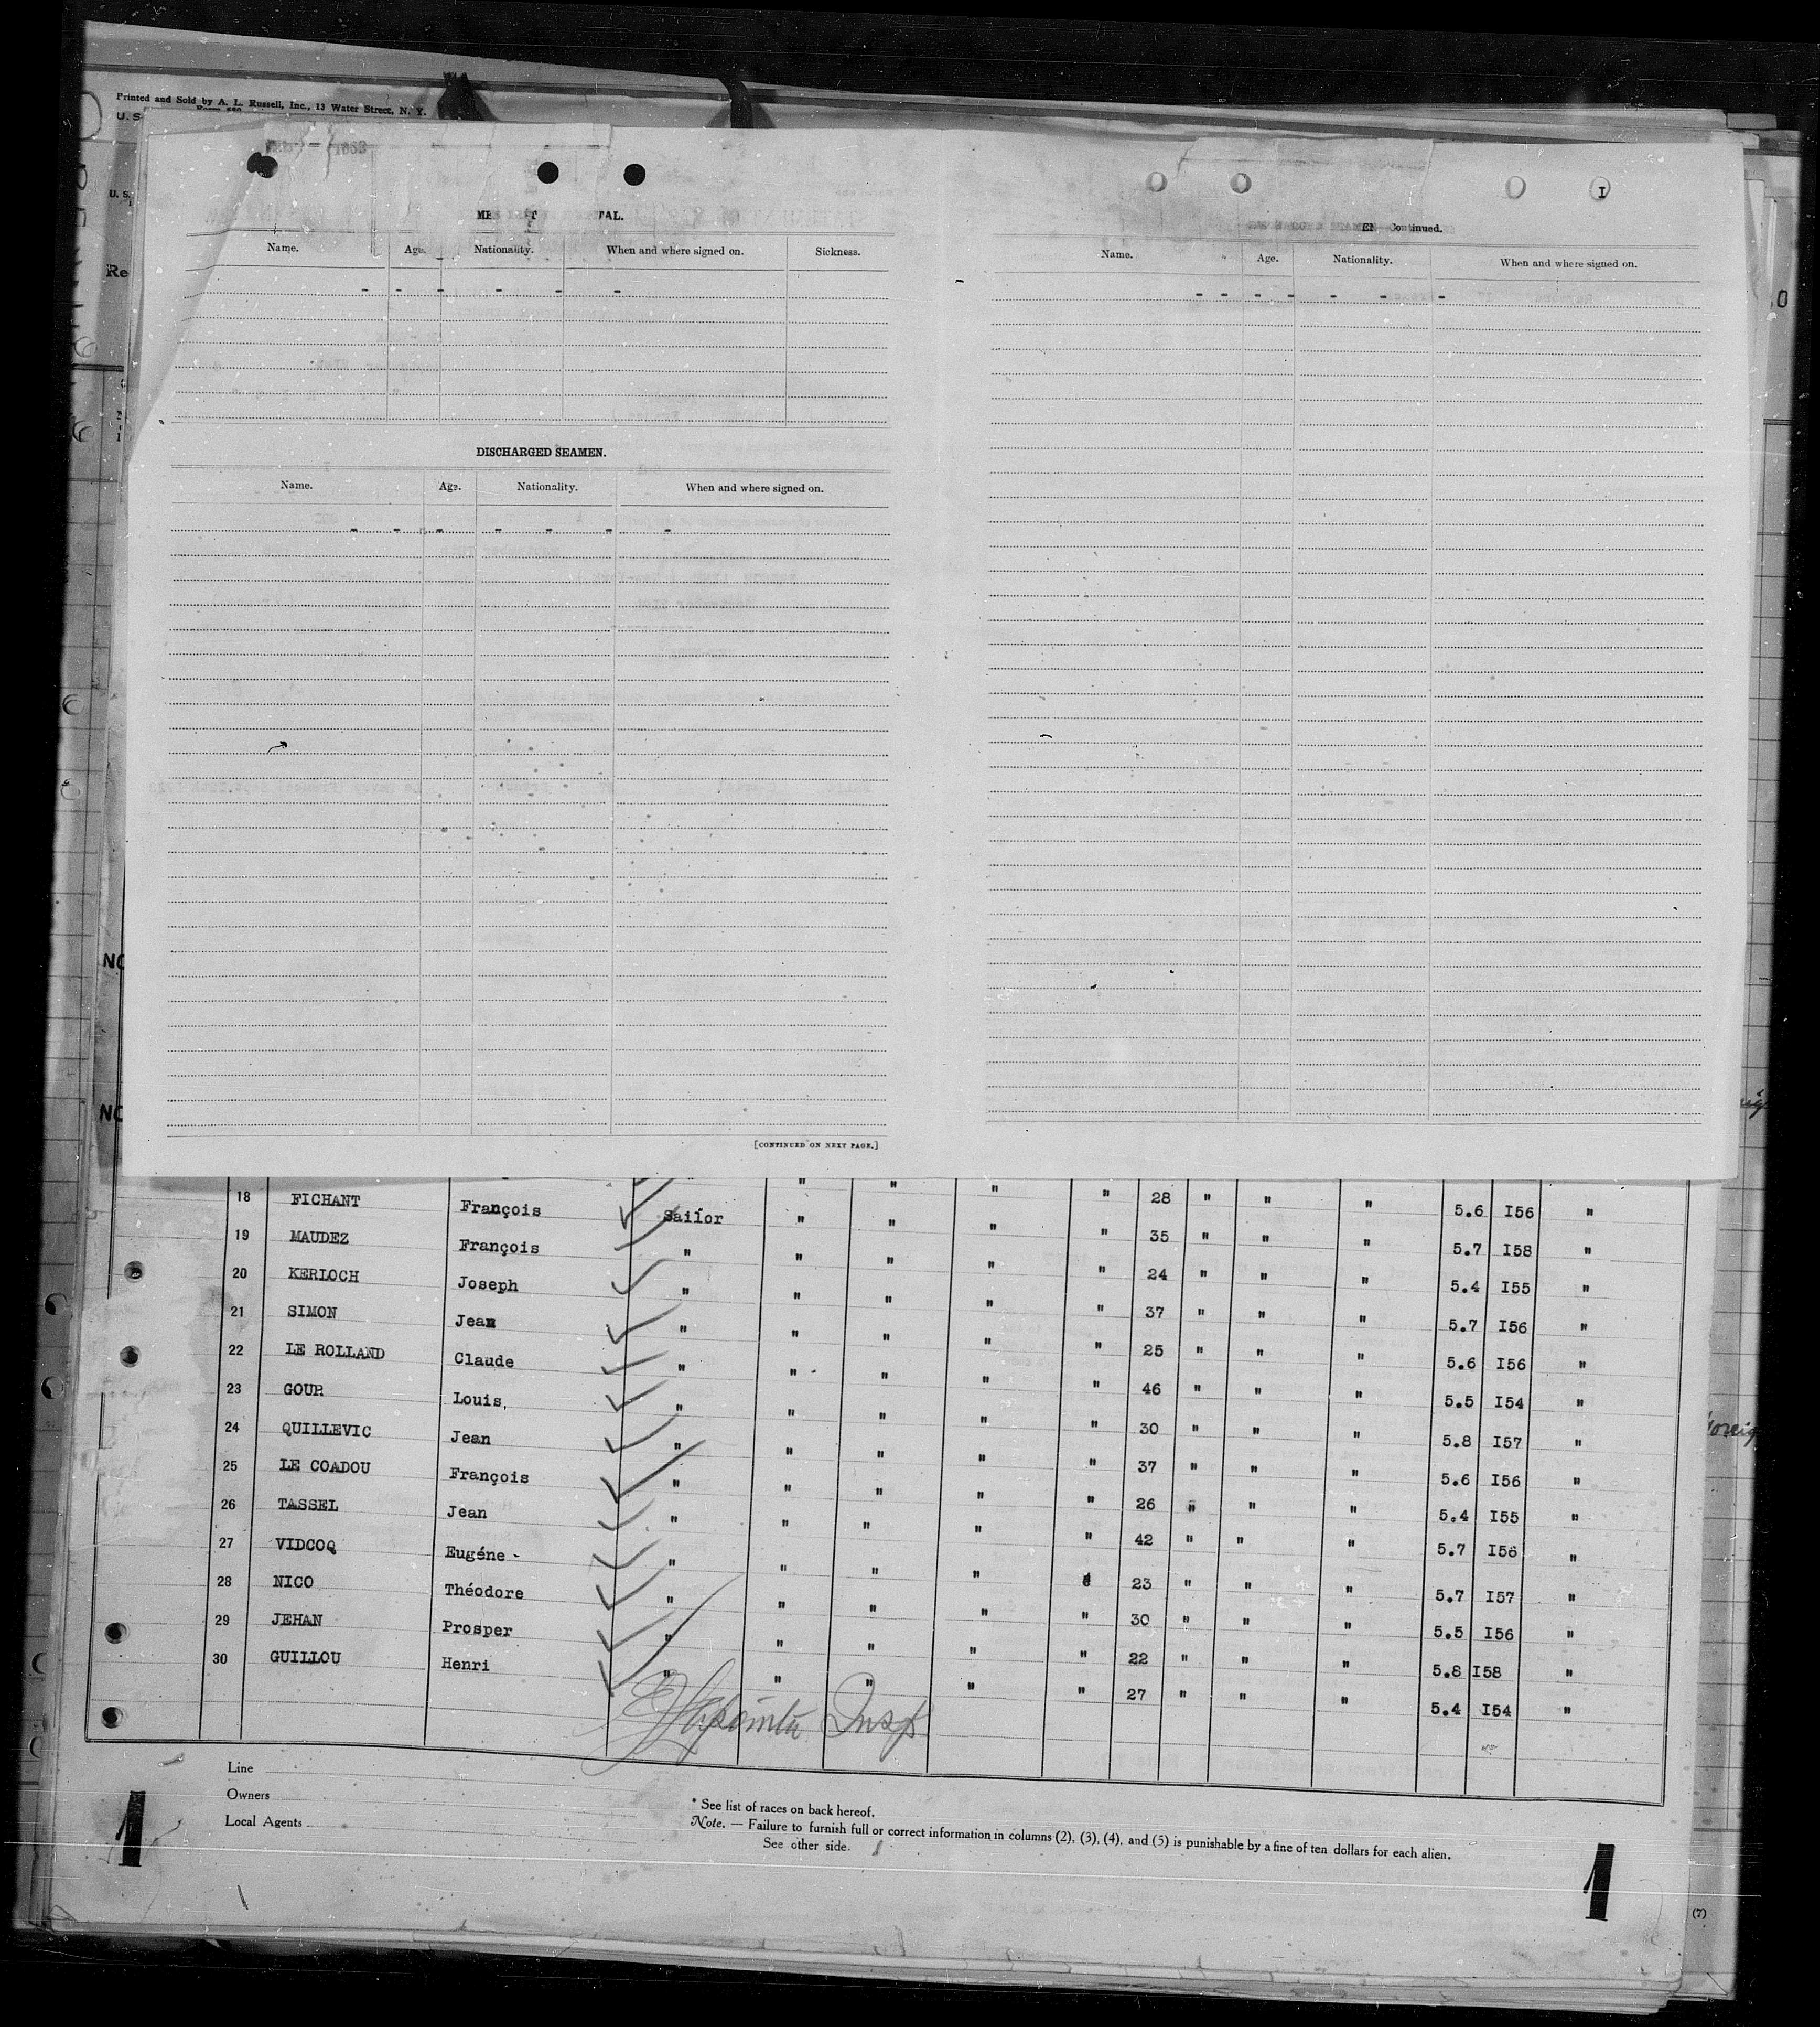 Printed and Sold by A. L. Russell, Inc., 13 Water Street, N. Y.
U. S.
Re
I
TAL.
EN Continued.
Name. Age. Nationality. When and where signed on. Sickness.
Name. Age. Nationality. When and where signed on.
- - - - - -
- - - - - - -
DISCHARGED SEAMEN.
Name. Age. Nationality. When and where signed on.
- - - - - - -
[CONTINUED ON NEXT PAGE.]
18 FICHANT François Sailor " " " " 28 " " " 5.6 I56 "
19 MAUDEZ François " " " " " 35 " " " 5.7 I58 "
20 KERLOCH Joseph " " " " " 24 " " " 5.4 I55 "
21 SIMON Jean " " " " " 37 " " " 5.7 I56 "
22 LE ROLLAND Claude " " " " " 25 " " " 5.6 I56 "
23 GOUR Louis. " " " " " 46 " " " 5.5 I54 "
24 QUILLEVIC Jean " " " " " 30 " " " 5.8 I57 "
25 LE COADOU François " " " " " 37 " " " 5.6 I56 "
26 TASSEL Jean " " " " " 26 " " " 5.4 I55 "
27 VIDCOQ Eugéne - " " " " " 42 " " " 5.7 I56 "
28 NICO Théodore " " " " 23 " " " 5.7 I57 "
29 JEHAN Prosper " " " " " 30 " " " 5.5 I56 "
30 GUILLOU Henri " " " " " 22 " " " 5.8 I58 "
" 27 " " " 5.4 I54 "
Lapointe Insp
Line
Owners
Local Agents
* See list of races on back hereof.
Note. — Failure to furnish full or correct information in columns (2), (3), (4), and (5) is punishable by a fine of ten dollars for each alien.
See other side.
1
1
(7)